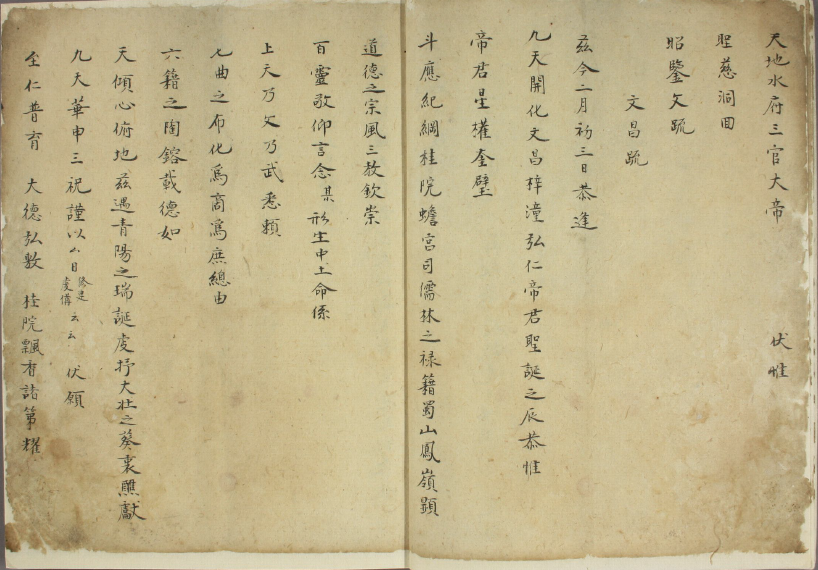 天地水府三官大帝 伏惟
聖慈洞回
昭鑒文疏
文昌疏
茲今二月初三日恭逢
九天開化文昌梓潼弘仁帝君聖誕之辰恭惟
帝君星權奎璧
斗應紀綱桂院蟾宮司儒林之禄籍蜀山鳳嶺顕
道德之宗風三教欽崇
百靈敬仰言念某形生中土命係
上天乃文乃武悉賴
七曲之布化為商為庶總由
六籍之陶鎔載德如
天傾心俯地茲遇青陽之瑞誕虔抒大壯之葵衷雧獻
九天華申三祝謹以厶日修建虔備云云 伏願
仝仁普育 大德弘敷 桂院飄香諸第耀